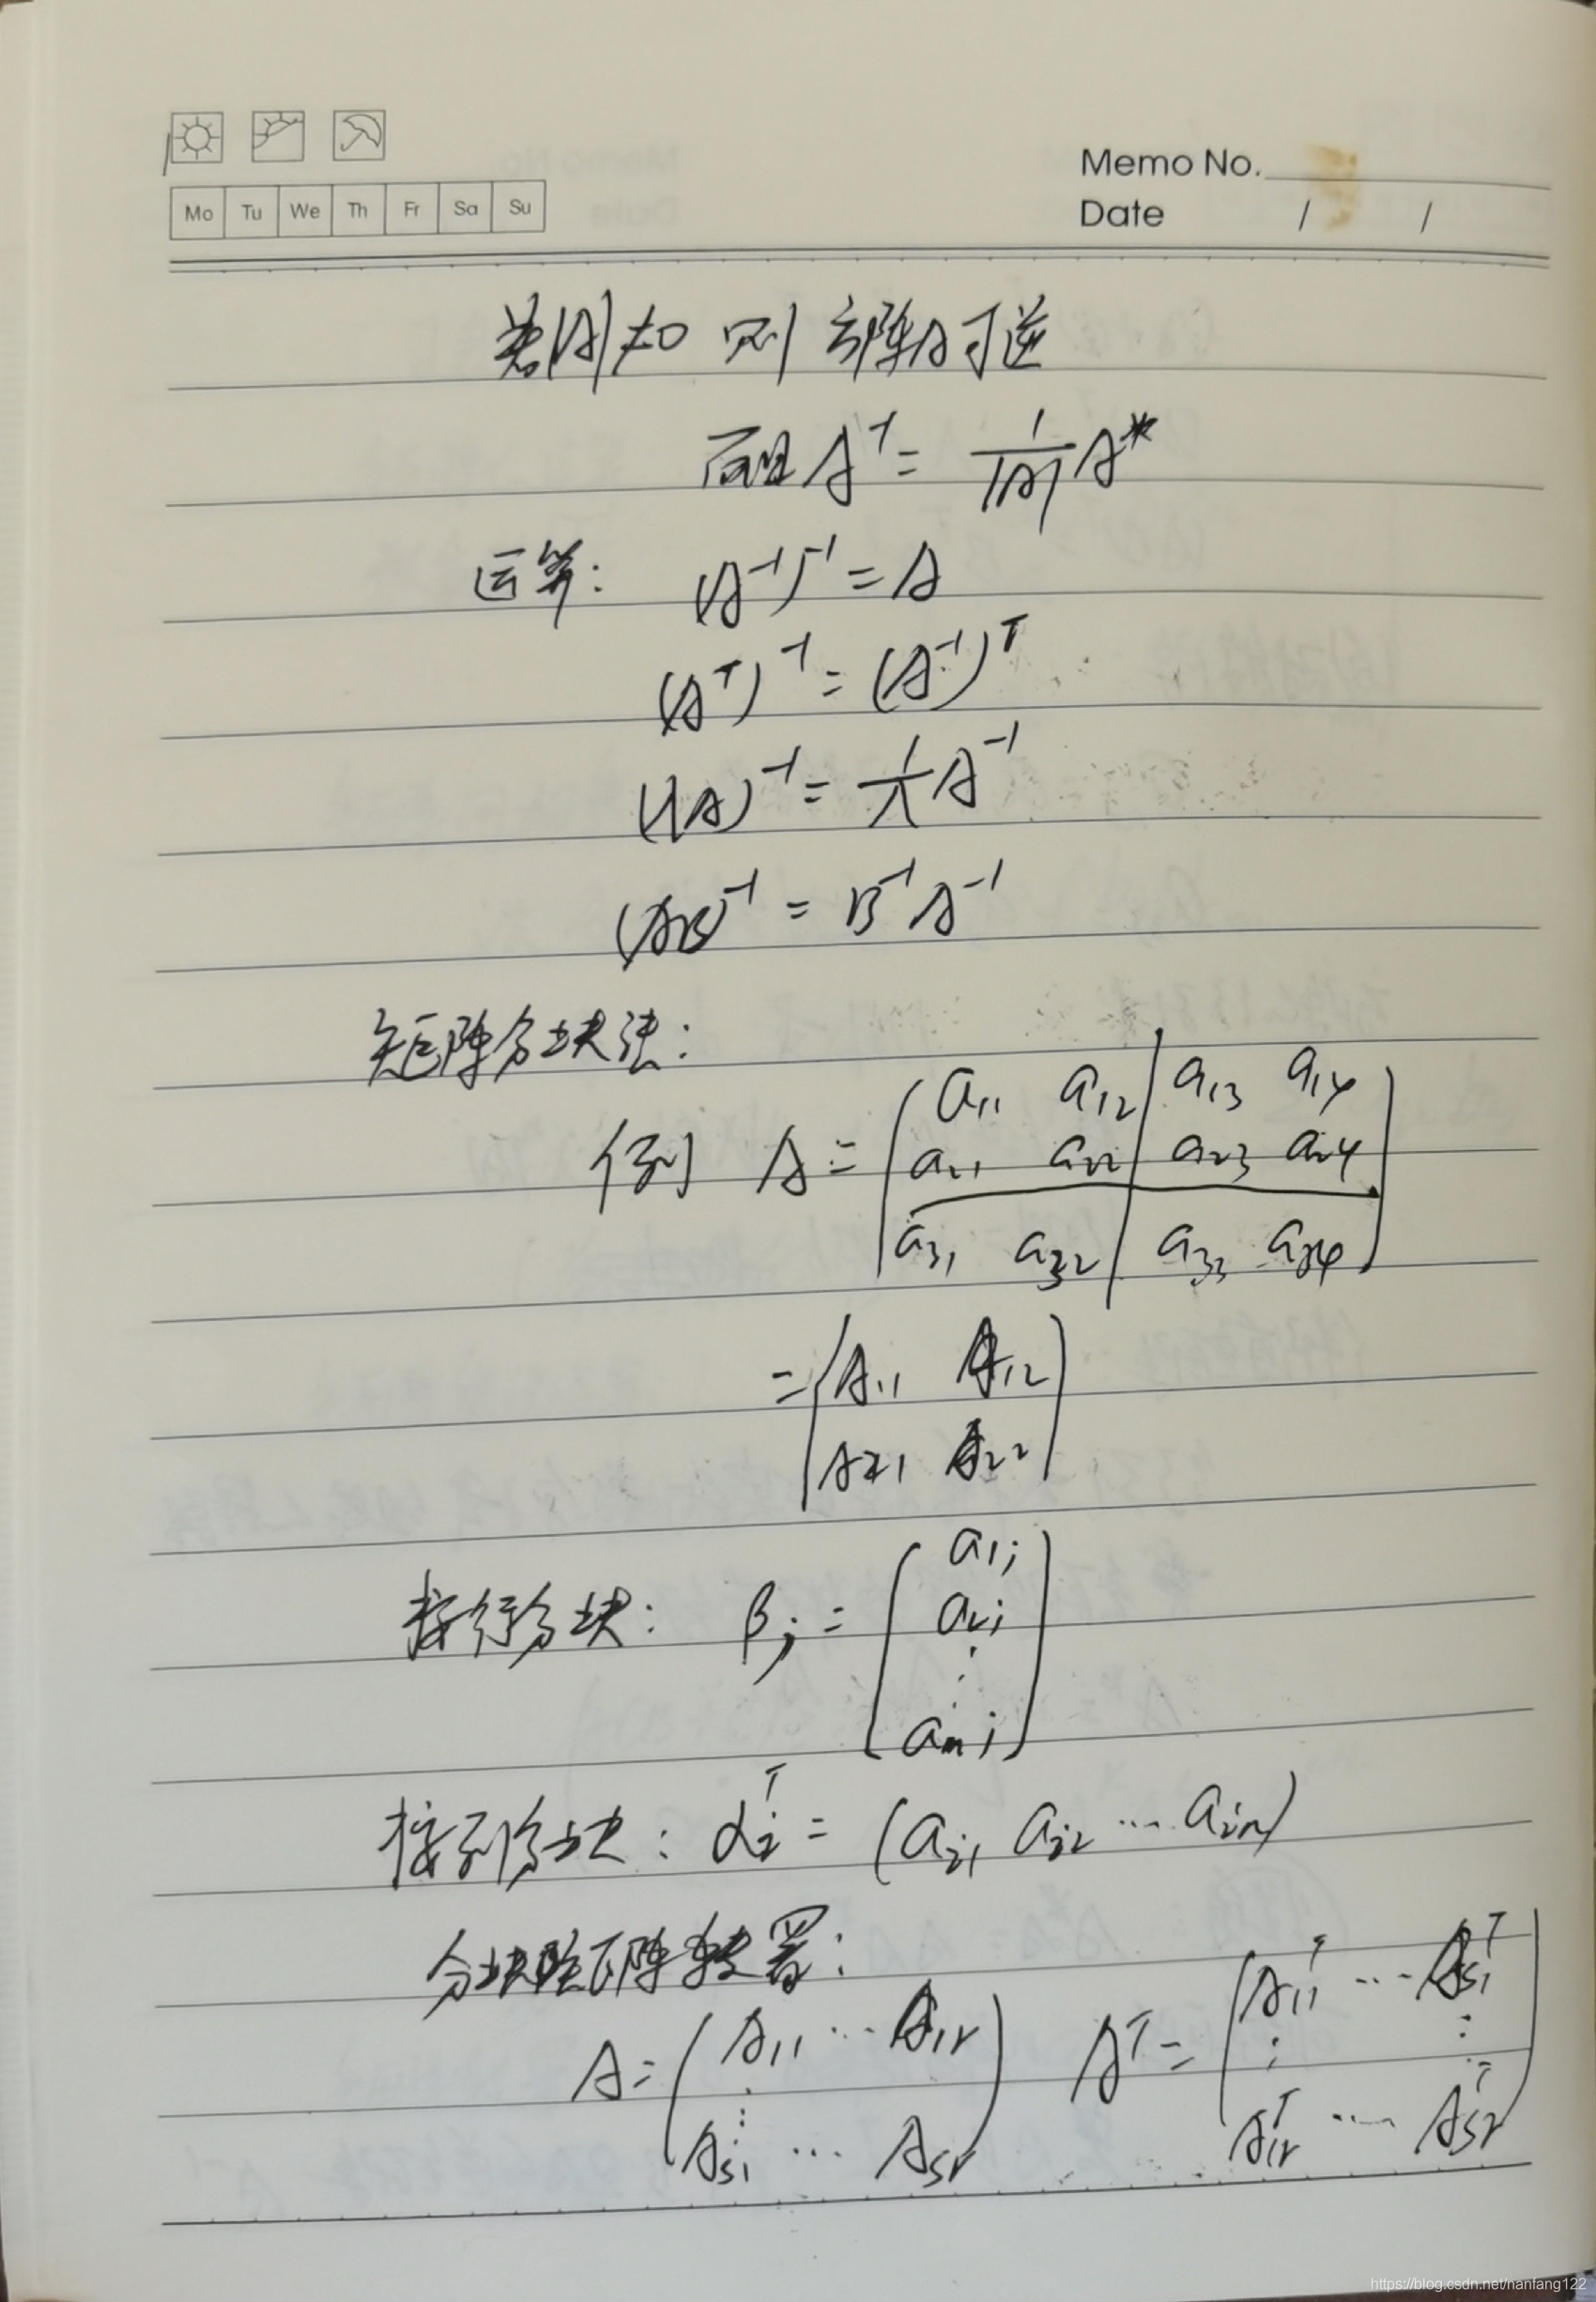 Memo No.
Mo Tu We Th Fr Sa Su
Date / /
若|A|≠0 则 矩阵A可逆
而且 A⁻¹ = 1/|A| A*
运算: (A⁻¹)⁻¹ = A
(Aᵀ)⁻¹ = (A⁻¹)ᵀ
(λA)⁻¹ = 1/λ A⁻¹
(AB)⁻¹ = B⁻¹A⁻¹
矩阵分块法:
例 A = ( a₁₁ a₁₂ | a₁₃ a₁₄
a₂₁ a₂₂ | a₂₃ a₂₄
a₃₁ a₃₂ | a₃₃ a₃₄ )
= ( A₁₁ A₁₂
A₂₁ A₂₂ )
按行分块: βj = ( a₁j
a₂j
⋮
amj )
按列分块: αiᵀ = (ai₁ ai₂ … ain)
分块矩阵转置:
A = ( A₁₁ … A₁r Aᵀ = ( A₁₁ᵀ … As₁ᵀ
⋮ ⋮ ⋮
As₁ … Asr ) A₁rᵀ … Asrᵀ )
https://blog.csdn.net/nanfang122